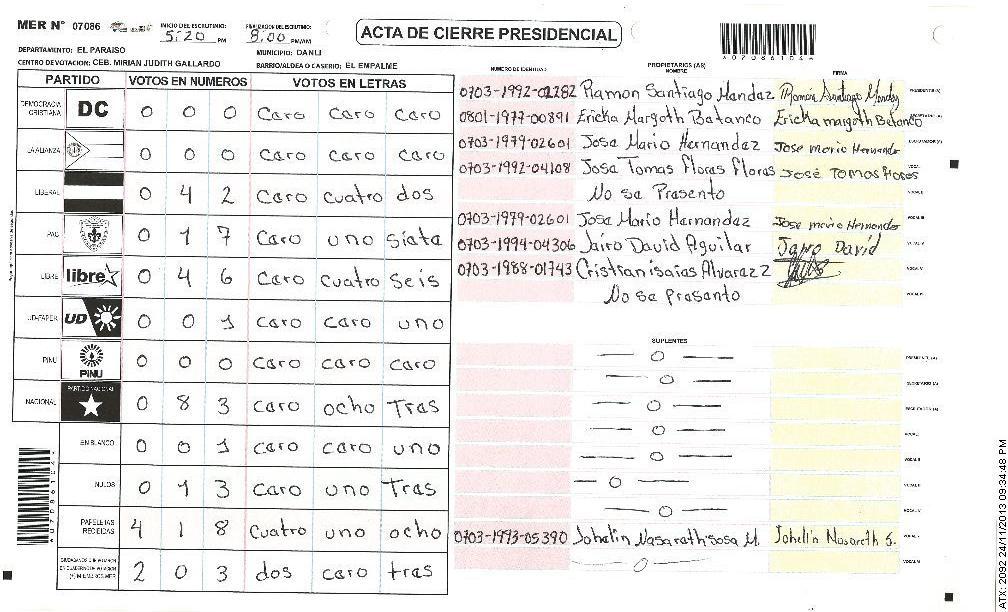 MER N° 07086 INICIO DEL ESCRUTINIO: 5:20 PM FINALIZACION DEL ESCRUTINIO: 8:00 PM/AM
ACTA DE CIERRE PRESIDENCIAL
DEPARTAMENTO: EL PARAISO MUNICIPIO: DANLI
CENTRO DE VOTACION: CEB. MIRIAN JUDITH GALLARDO BARRIO/ALDEA O CASERIO: EL EMPALME
*07086104*
PARTIDO VOTOS EN NUMEROS VOTOS EN LETRAS
DEMOCRACIA CRISTIANA DC 0 0 0 Caro caro caro
LA ALIANZA 0 0 0 Caro caro caro
LIBERAL 0 4 2 Caro cuatro dos
PAC 0 1 7 Caro uno siata
LIBRE libre 0 4 6 Caro cuatro seis
UD-FAPER UD 0 0 1 caro caro uno
PINU PINU 0 0 0 caro caro caro
NACIONAL PARTIDO NACIONAL 0 8 3 caro ocho Tras
EN BLANCO 0 0 1 caro caro uno
NULOS 0 1 3 caro uno Tras
PAPELETAS RECIBIDAS 4 1 8 cuatro uno ocho
2 0 3 dos caro tras
NUMERO DE IDENTIDAD PROPIETARIOS (AS) NOMBRE FIRMA
0703-1992-02282 Ramon Santiago Mandaz Ramon Santiago Mendez PRESIDENTE (A)
0801-1977-00891 Ericka Margoth Batanco Ericka margoth Betanco SECRETARIO (A)
0703-1979-02601 Josa Mario Hernandez Jose mario Hernandez ESCRUTADOR (A)
0703-1992-04108 Josa Tomas floras floras José Tomas flores VOCAL I
No sa Prasento VOCAL II
0703-1979-02601 Josa Mario Hernandaz Jose mario Hernandez VOCAL III
0703-1994-04306 Jairo David Aguilar Jairo David VOCAL IV
0703-1988-01743 Cristian isaias Alvarazz VOCAL V
No sa Prasanto VOCAL VI
SUPLENTES
0 PRESIDENTE (A)
0 SECRETARIO (A)
0 ESCRUTADOR (A)
0 VOCAL I
0 VOCAL II
0 VOCAL III
0 VOCAL IV
0703-1993-05390 Johalin Nasarath sosa M. Johelin Nasareth S. VOCAL V
0 VOCAL VI
*07086104*
ATX: 2092 24/11/2013 09:34:48 PM